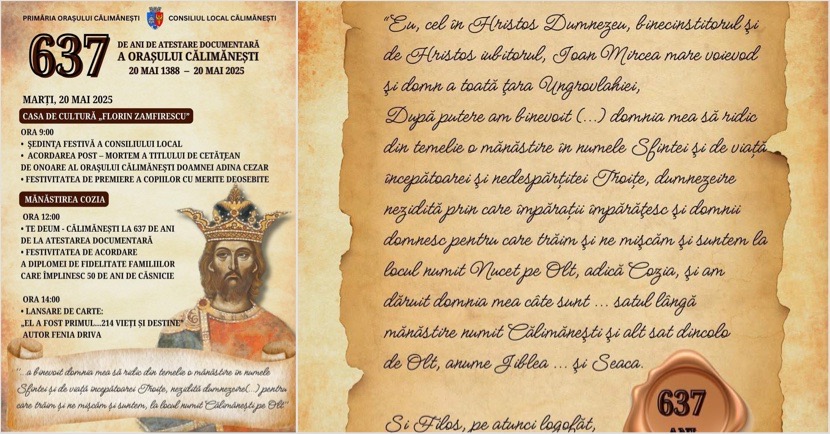 PRIMĂRIA ORAȘULUI CĂLIMĂNEȘTI
CONSILIUL LOCAL CĂLIMĂNEȘTI
637
DE ANI DE ATESTARE DOCUMENTARĂ
A ORAȘULUI CĂLIMĂNEȘTI
20 MAI 1388 – 20 MAI 2025
MARȚI, 20 MAI 2025
CASA DE CULTURĂ „FLORIN ZAMFIRESCU”
ORA 9:00
• ȘEDINȚA FESTIVĂ A CONSILIULUI LOCAL
• ACORDAREA POST – MORTEM A TITLULUI DE CETĂȚEAN
DE ONOARE AL ORAȘULUI CĂLIMĂNEȘTI DOAMNEI ADINA CEZAR
• FESTIVITATEA DE PREMIERE A COPIILOR CU MERITE DEOSEBITE
MĂNĂSTIREA COZIA
ORA 12:00
• TE DEUM - CĂLIMĂNEȘTI LA 637 DE ANI
DE LA ATESTAREA DOCUMENTARĂ
• FESTIVITATEA DE ACORDARE
A DIPLOMEI DE FIDELITATE FAMILIILOR
CARE ÎMPLINESC 50 DE ANI DE CĂSNICIE
ORA 14:00
• LANSARE DE CARTE:
„EL A FOST PRIMUL...214 VIEȚI ȘI DESTINE”
AUTOR FENIA DRIVA
“... a binevoit domnia mea să ridic din temelie o mănăstire în numele
Sfintei și de viață începătoarei Troițe, nezidită dumnezeire(...) pentru
care trăim și ne mișcăm și suntem, la locul numit Călimănești pe Olt”
“Eu, cel în Hristos Dumnezeu, binecinstitorul și
de Hristos iubitorul, Ioan Mircea mare voievod
și domn a toată țara Ungrovlahiei,
După putere am binevoit (...) domnia mea să ridic
din temelie o mănăstire în numele Sfintei și de viață
începătoarei și nedespărțitei Troițe, dumnezeire
nezidită prin care împărații împărățesc și domnii
domnesc pentru care trăim și ne mișcăm și suntem la
locul numit Nucet pe Olt, adică Cozia, și am
dăruit domnia mea câte sunt ... satul lângă
mănăstire numit Călimănești și alt sat dincolo
de Olt, anume Jiblea ... și Seaca.
Și Filos, pe atunci logofăt,
637
ANI